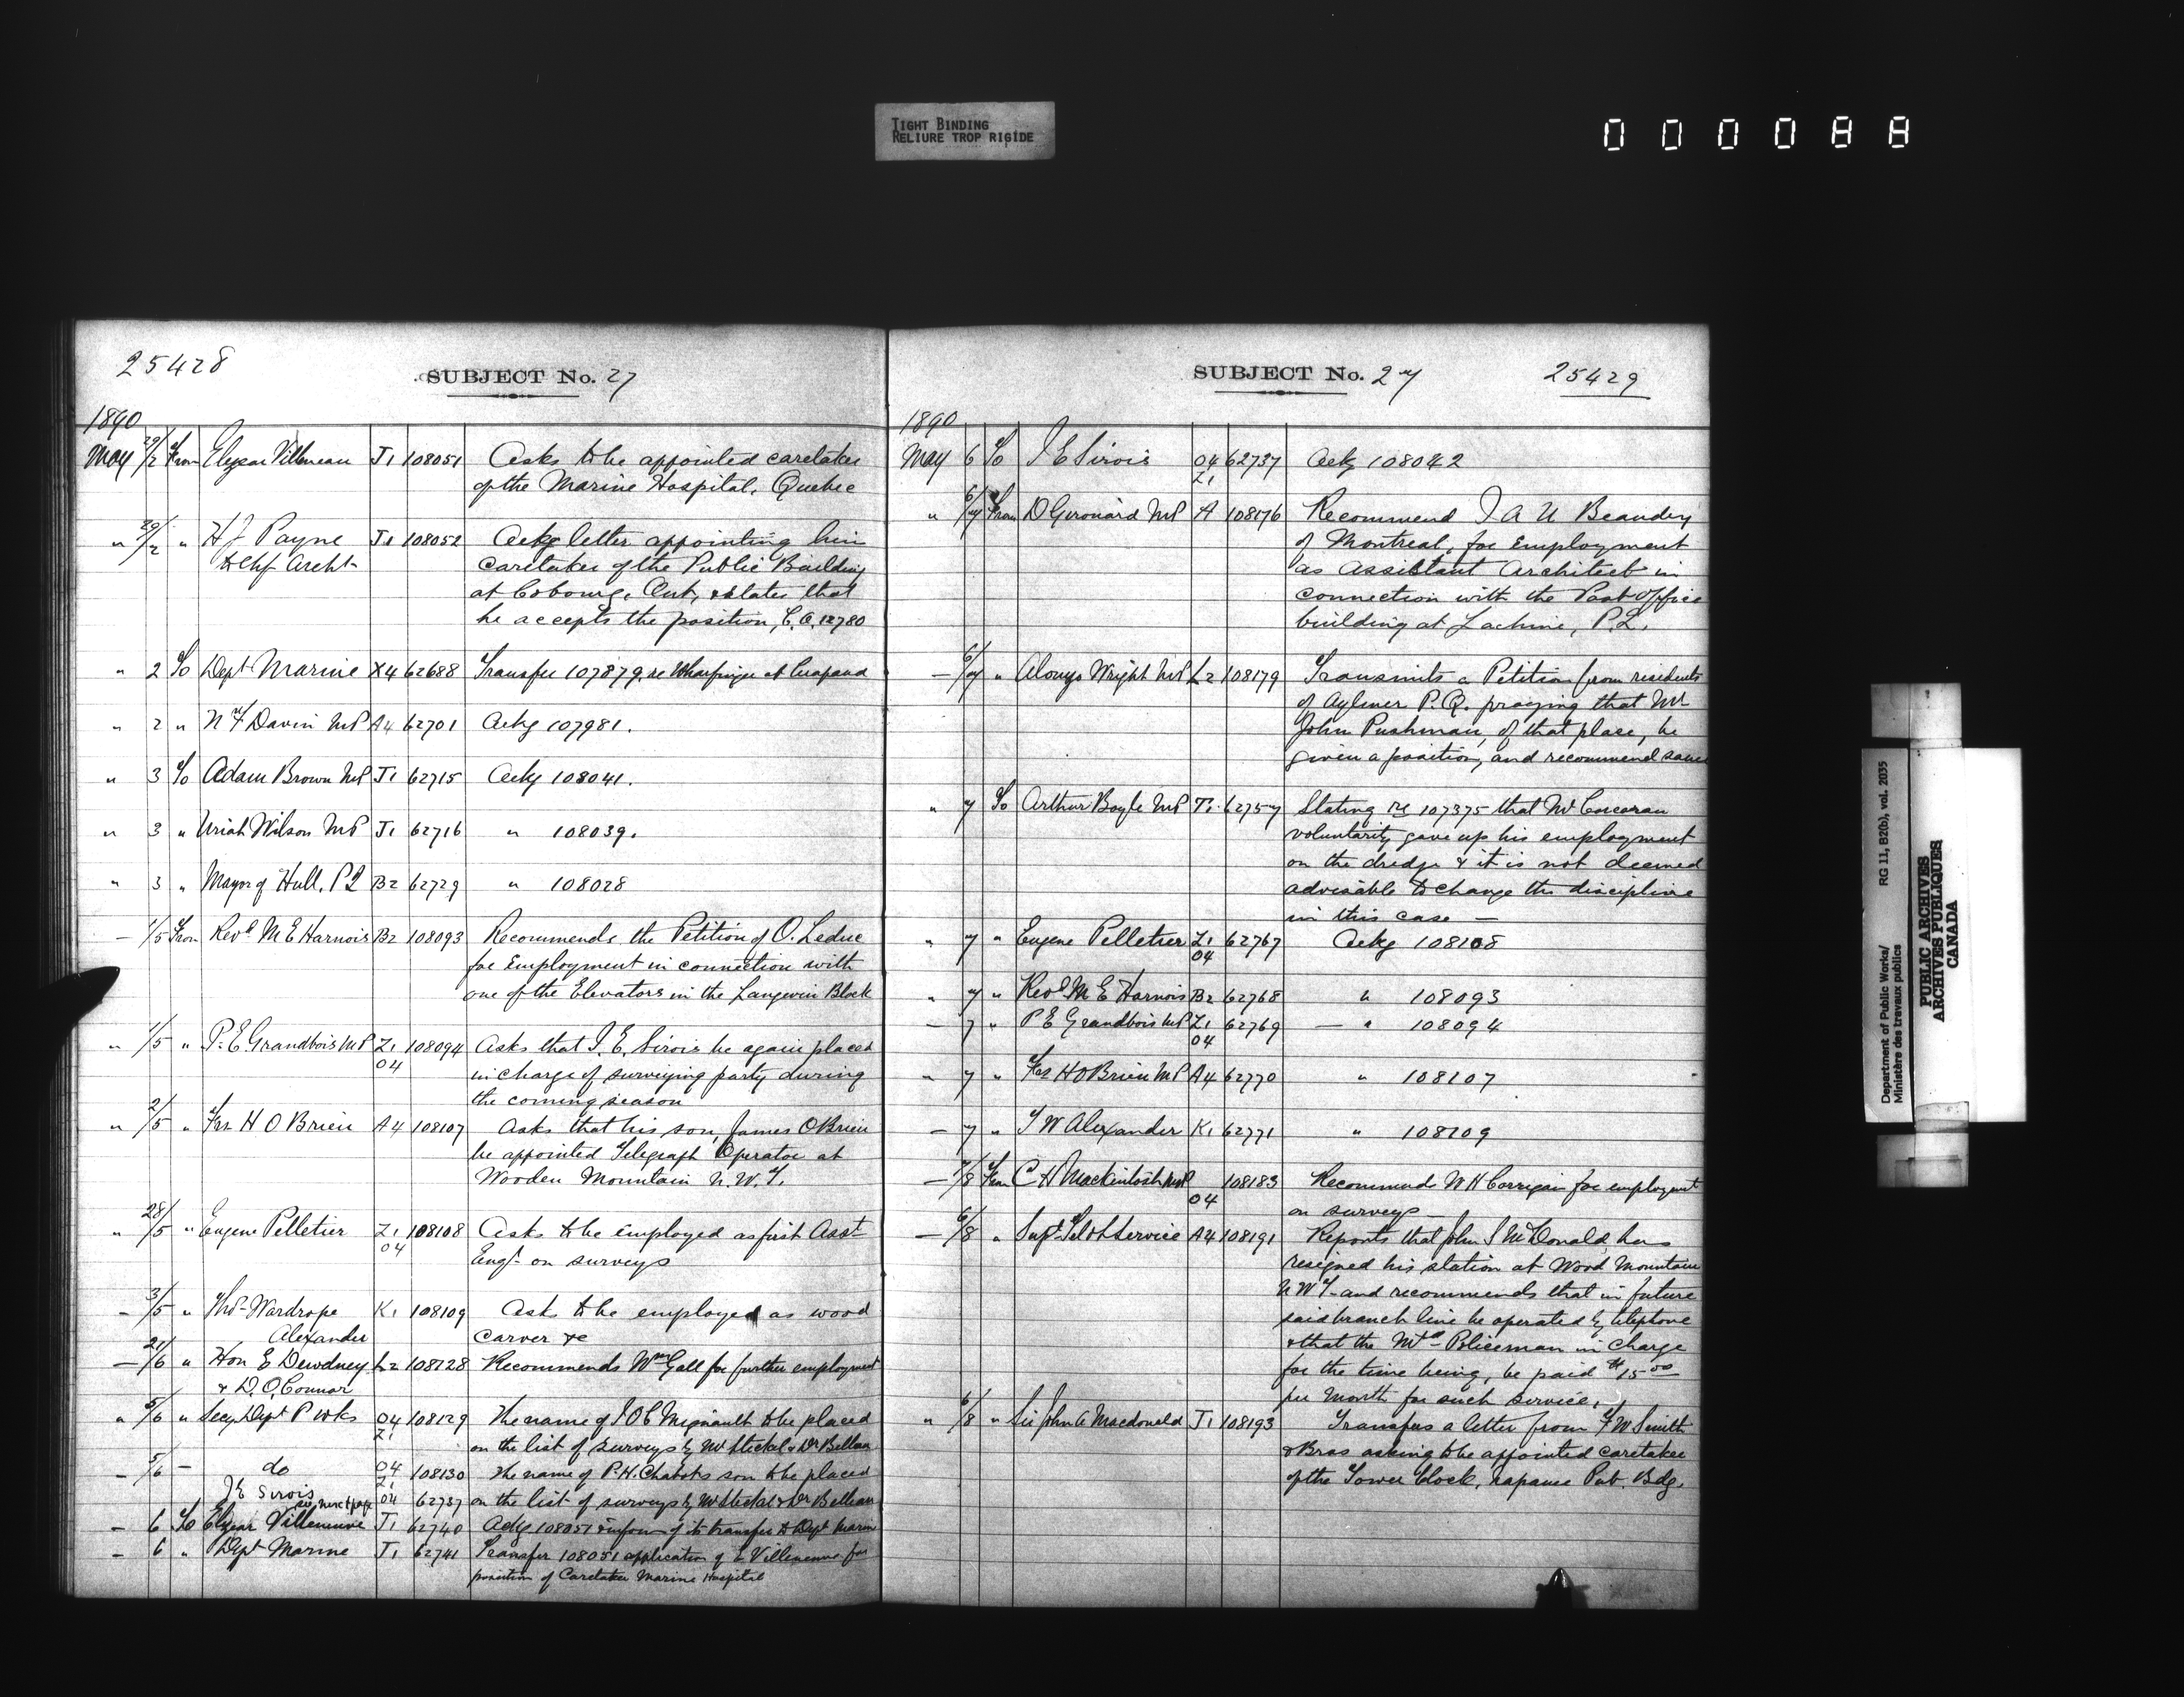 TIGHT BINDING
RELIURE TROP RIGIDE
000088
25428
SUBJECT No. 27
1890
May 29/2 From Elzear Villeneau J1 108051 Asks to be appointed caretaker
of the Marine Hospital, Quebec
" 29/2 " H J Payne J1 108052 Ackg letter appointing him
to Chf Archt caretaker of the Public Building
at Cobourg, Ont, & states that
he accepts the position, C.A. 12780
" 2 To Dept Marine X4 62688 Transfer 107879, re Wharfinger at
" 2 " N F Davin MP A4 62701 Ackg 107981.
" 3 To Adam Brown MP J1 62715 Ackg 108041.
" 3 " Uriah Wilson MP J1 62716 " 108039.
" 3 " Mayor of Hull, P2 B2 62729 " 108028
— 1/5 From Revd M E Harnois B2 108093 Recommends the Petition of O. Leduc
for Employment in connection with
one of the Elevators in the Langevin Block
" 1/5 " P. E. Grandbois MP Z1 108094 Asks that J. E. Sirois be again placed
04 in charge of surveying party during
the coming season
" 2/5 " Frs H O Brien A4 108107 Asks that his son, James OBrien
be appointed Telegraph Operator at
Wooden Mountain N. W. T.
" 28/5 " Eugene Pelletier Z1 108108 Asks to be employed as first Asst
04 Engr on surveys
— 3/5 " Thos Wardrope K1 108109 Ask to be employed as wood
Alexander carver &c
— 21/6 " Hon E Dewdney L2 108128 Recommends Wm Gall for further employment
& D. O. Connor
" 5/6 " Secy Dept P Wks 04 108129 The name of J O C Mignault to be placed
Z1 on the list of surveys by Mr Steckel & Dr Belleau
— 5/6 — do 04 108130 The name of P. H. Chabots son to be placed
Z1
J E Sirois see next page 04 62737 on the list of surveys by Mr Steckel & Dr Belleau
— 6 To Elzear Villeneuve J1 62740 Ackg 108051 & inform of its transfer to Dept Marine
— 6 " Dept Marine J1 62741 Transfer 108051 application of E Villeneuve for
position of Caretaker Marine Hospital
SUBJECT No. 27
25429
1890
May 6 To J E Sirois 04 62737 Ackg 108042
Z1
" 6/7 From D Girouard MP A 108176 Recommend J A U Beaudry
of Montreal, for Employment
as Assistant Architect in
connection with the Post Office
building at Lachine, P.2.
— 6/7 " Alonzo Wright MP L2 108179 Transmits a Petition from residents
of Aylmer P.Q. praying that Mr
John Pushman, of that place, be
given a position, and recommend same
" 7 To Arthur Boyle MP T1 62757 Stating re 107375 that Mr Corcoran
voluntarily gave up his employment
on the dredge & it is not deemed
advisable to change the discipline
in this case —
" 7 " Eugene Pelletier Z1 62767 Ackg 108108
04
" 7 " Revd M E Harnois B2 62768 " 108093
— 7 " P E Grandbois MP Z1 62769 — " 108094
04
" 7 " Frs H O Brien MP A4 62770 " 108107
— 7 " T W Alexander K1 62771 " 108109
— 7/8 From C H Mackintosh MP 108183 Recommends W H Corrigan for employment
04 on surveys —
— 6/8 " Supt Tel Service A4 108191 Reports that John S McDonald has
resigned his station at Wood Mountain
N W T — and recommends that in future
said branch line be operated by telephone
& that the Mtd Policeman in Charge
for the time being, be paid $15.00
per Month for such service.
" 6/8 " Sir John A Macdonald J1 108193 Transfers a letter from F W Smith
& Bros asking to be appointed caretaker
of the Tower Clock, Napanee Pub. Bdg.
Department of Public Works/
Ministère des travaux publics
RG 11, B2(b), vol. 2035
PUBLIC ARCHIVES
ARCHIVES PUBLIQUES
CANADA